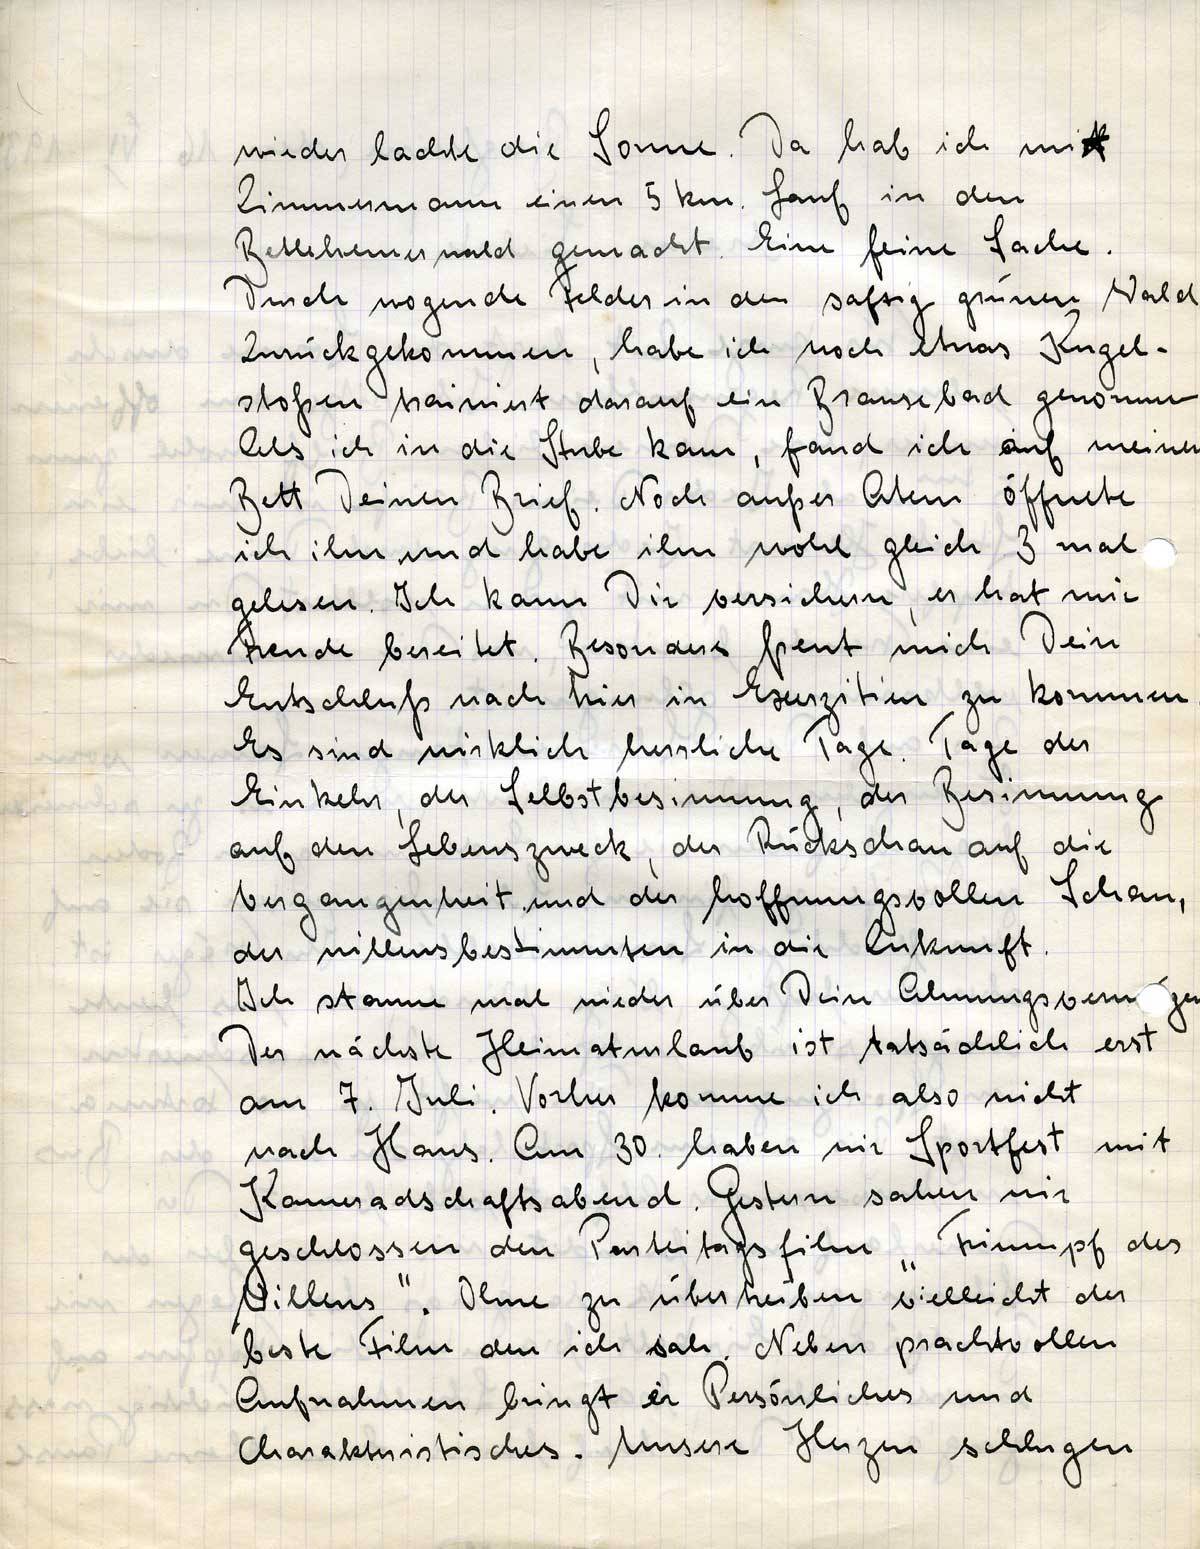 wieder lachte die Sonne. Da hab ich mit
Zimmermann einen 5 km. Lauf in den
Bethlehemerwald gemacht. Eine feine Sache.
Durch wogende Felder in den saftig grünen Wald
Zurückgekommen, habe ich noch etwas Kugel-
stoßen trainiert darauf ein Brausebad genommen
Als ich in die Stube kam, fand ich auf meinem
Bett Deinen Brief. Noch außer Atem öffnete
ich ihn und habe ihn wohl gleich 3 mal
gelesen. Ich kann Dir versichern, er hat mir
Freude bereitet. Besonders freut mich Dein
Entschluß nach hier in Exerzitien zu kommen.
Es sind wirklich herrliche Tage. Tage der
Einkehr, der Selbstbesinnung, der Besinnung
auf den Lebenszweck, der Rückschau auf die
Vergangenheit und der hoffnungsvollen Schau,
der willensbestimmten in die Zukunft.
Ich staune mal wieder über Dein Ahnungsvermögen
Der nächste Heimaturlaub ist tatsächlich erst
am 7. Juli. Vorher komme ich also nicht
nach Haus. Am 30. haben wir Sportfest mit
Kameradschaftsabend. Gestern sahen wir
geschlossen den Parteitagsfilm „Triumpf des
Willens". Ohne zu übertreiben vielleicht der
beste Film den ich sah. Neben prachtvollen
Aufnahmen bringt er Persönliches und
Charakteristisches. Unsere Herzen schlugen